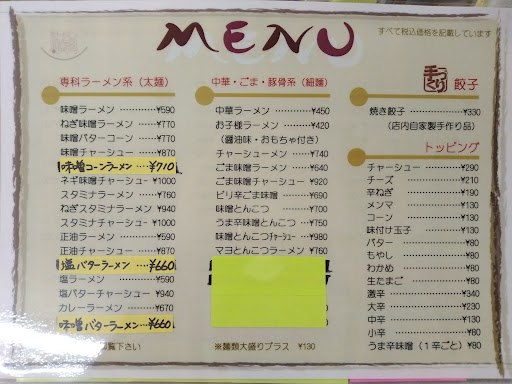 MENU
すべて税込価格を記載しています
専科ラーメン系（太麺）
味噌ラーメン …………¥590
ねぎ味噌ラーメン ……¥770
味噌バターコーン ……¥770
味噌チャーシュー ……¥870
味噌コーンラーメン…¥710
ネギ味噌チャーシュー ¥1000
スタミナラーメン ……¥760
ねぎスタミナラーメン ¥940
スタミナチャーシュー ¥1000
正油ラーメン …………¥590
正油チャーシュー ……¥870
塩バターラーメン …¥660
塩ラーメン ……………¥590
塩バターチャーシュー ¥940
カレーラーメン ………¥670
味噌バターラーメン…¥660
中華・ごま・豚骨系（細麺）
中華ラーメン …………¥450
お子様ラーメン ………¥420
（醤油味・おもちゃ付き）
チャーシューメン ……¥740
ごま味噌ラーメン ……¥640
ごま味噌チャーシュー ¥920
ピリ辛ごま味噌 ………¥690
味噌とんこつ …………¥700
うま辛味噌とんこつ …¥750
味噌とんこつチャーシュー …¥980
マヨとんこつラーメン ¥760
※麺類大盛りプラス ¥130
手つくり 餃子
焼き餃子 ………………¥330
（店内自家製手作り品）
トッピング
チャーシュー …………¥290
チーズ …………………¥210
辛ねぎ …………………¥190
メンマ …………………¥130
コーン …………………¥130
味付け玉子 ……………¥130
バター …………………¥80
もやし …………………¥80
わかめ …………………¥80
生たまご ………………¥80
激辛 ……………………¥340
大辛 ……………………¥230
中辛 ……………………¥130
小辛 ……………………¥80
うま辛味噌（１辛ごと）¥80